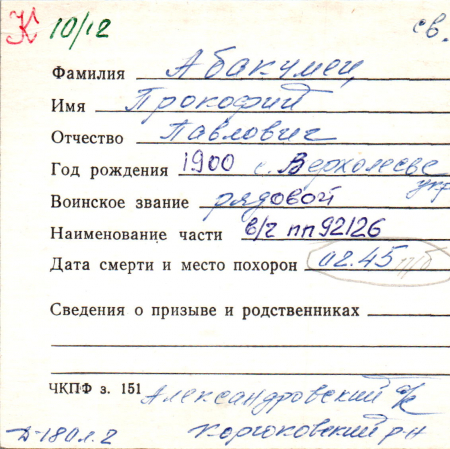 К 10/12 св.
Фамилия Абакумец
Имя Прокофий
Отчество Павлович
Год рождения 1900 с. Верхолесье
укр
Воинское звание рядовой
Наименование части в/ч пп 92126
Дата смерти и место похорон 02.45 п/б
Сведения о призыве и родственниках
ЧКПФ з. 151 Александровский
Д-180 л. 2 р-н